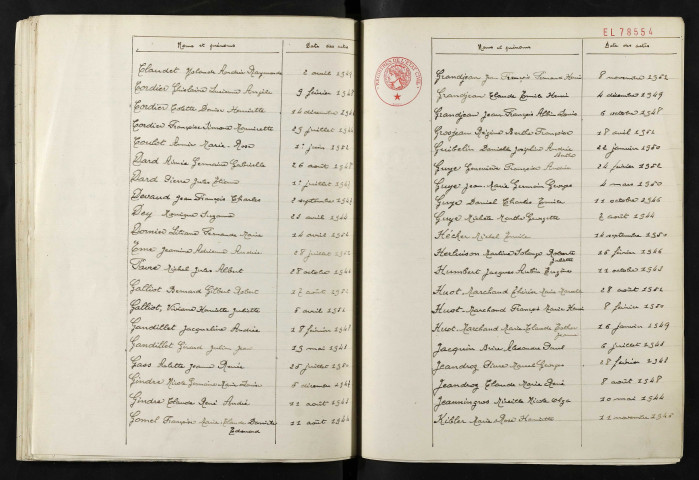 Noms et prénoms Date des actes
Claudet Yolande Andrée Raymonde 2 avril 1949
Cordier Ghislaine Lucienne Angèle 3 février 1948
Cordier Colette Denise Henriette 14 décembre
Cordier Françoise Simone Henriette 23 juillet
Coulot Annie Marie-Rose 1er juin 1951
Dard Aimée Germaine Gabrielle 26 août 1948
Dard Pierre Jules 1er juillet
Devaud Jean François Charles 2 septembre
Dey Monique Suzanne 21 avril
Dornier Liliane Fernande Marie 14 avril
Eme Jeannine Adrienne Andrée 28 juillet
Favre Michel Jules Albert 28 octobre
Galliot Bernard Gilbert Robert 17 août 1951
Galliot, Viviane Henriette Juliette 5 avril 1951
Gandillet Jacqueline Andrée 18 février
Gandillet Gérard Julien Jean 13 mai
Gass Arlette Jeanne Renée 25 juillet
Gindre Nicole Germaine Marie Louise 5 décembre
Gindre Claude René André 11 août
Gomel François Marie Claude Dominique 11 août
Edmond
EL 78554
Noms et prénoms Date des actes
REGISTRES DE L'ETAT CIVIL
Grandjean Jean François Fernand Henri 8 novembre 1951
Grandjean Claude Emile Henri 4 décembre 1949
Grandjean Jean François Albin Louis 6 octobre 1948
Grosjean Régine Berthe Françoise 18 avril 1951
Guibelin Danielle Josèphe Andrée 22 janvier 1950
Berthe
Guye Geneviève Françoise 24 février 1952
Guye Jean-Marie Germain Georges 4 mars 1950
Guye Daniel Charles Emile 11 octobre 1946
Guye Michèle Marthe Georgette 2 août
Hécker Michel Emile 14 septembre 1950
Herbisson Martine Solange Roberte 16 février 1946
Juliette
Humbert Jacques Aubin Eugène 11 octobre
Huot-Marchand Thérèse Marie 28 août 1951
Huot-Marchand François Marie Henri 8 février 1950
Huot-Marchand Marie Claude Esther 16 janvier 1949
Jeanne
Jacquin Alexandre Paul 6 juillet
Jeandroz Pierre Marcel Georges 28 février
Jeandroz Claude Marie René 8 août 1948
Jeanningros Mireille Nicole Olga 10 mai 1944
Kibler Marie Rose Henriette 11 novembre